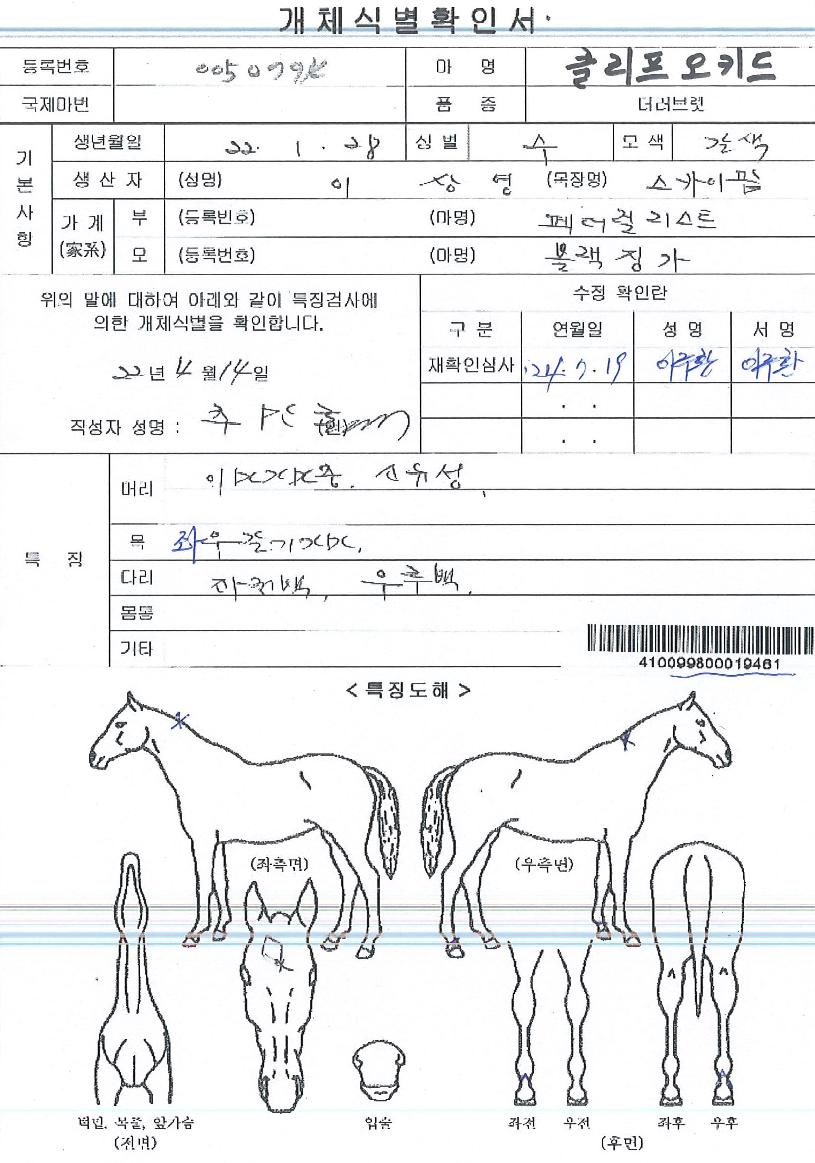 개체식별확인서
등록번호 마명 클리프오키드
국제마번 품종 더러브렛
기본사항
생년월일 22. 1. 28 성별 수 모색 갈색
생산자 (성명) 이상영 (목장명) 스카이팜
가계(家系) 부 (등록번호) (마명) 페더럴리스트
모 (등록번호) (마명) 블랙징가
위의 말에 대하여 아래와 같이 특징검사에
의한 개체식별을 확인합니다.
22년 4월 14일
작성자 성명 :
수정 확인란
구분 연월일 성명 서명
재확인심사 '24. 7. 19
. .
. .
특징
머리
목
다리 우후백.
몸통
기타
410099800019461
<특징도해>
(좌측면) (우측면)
턱밑, 목줄, 앞가슴 입술 좌전 우전 좌후 우후
(전면) (후면)